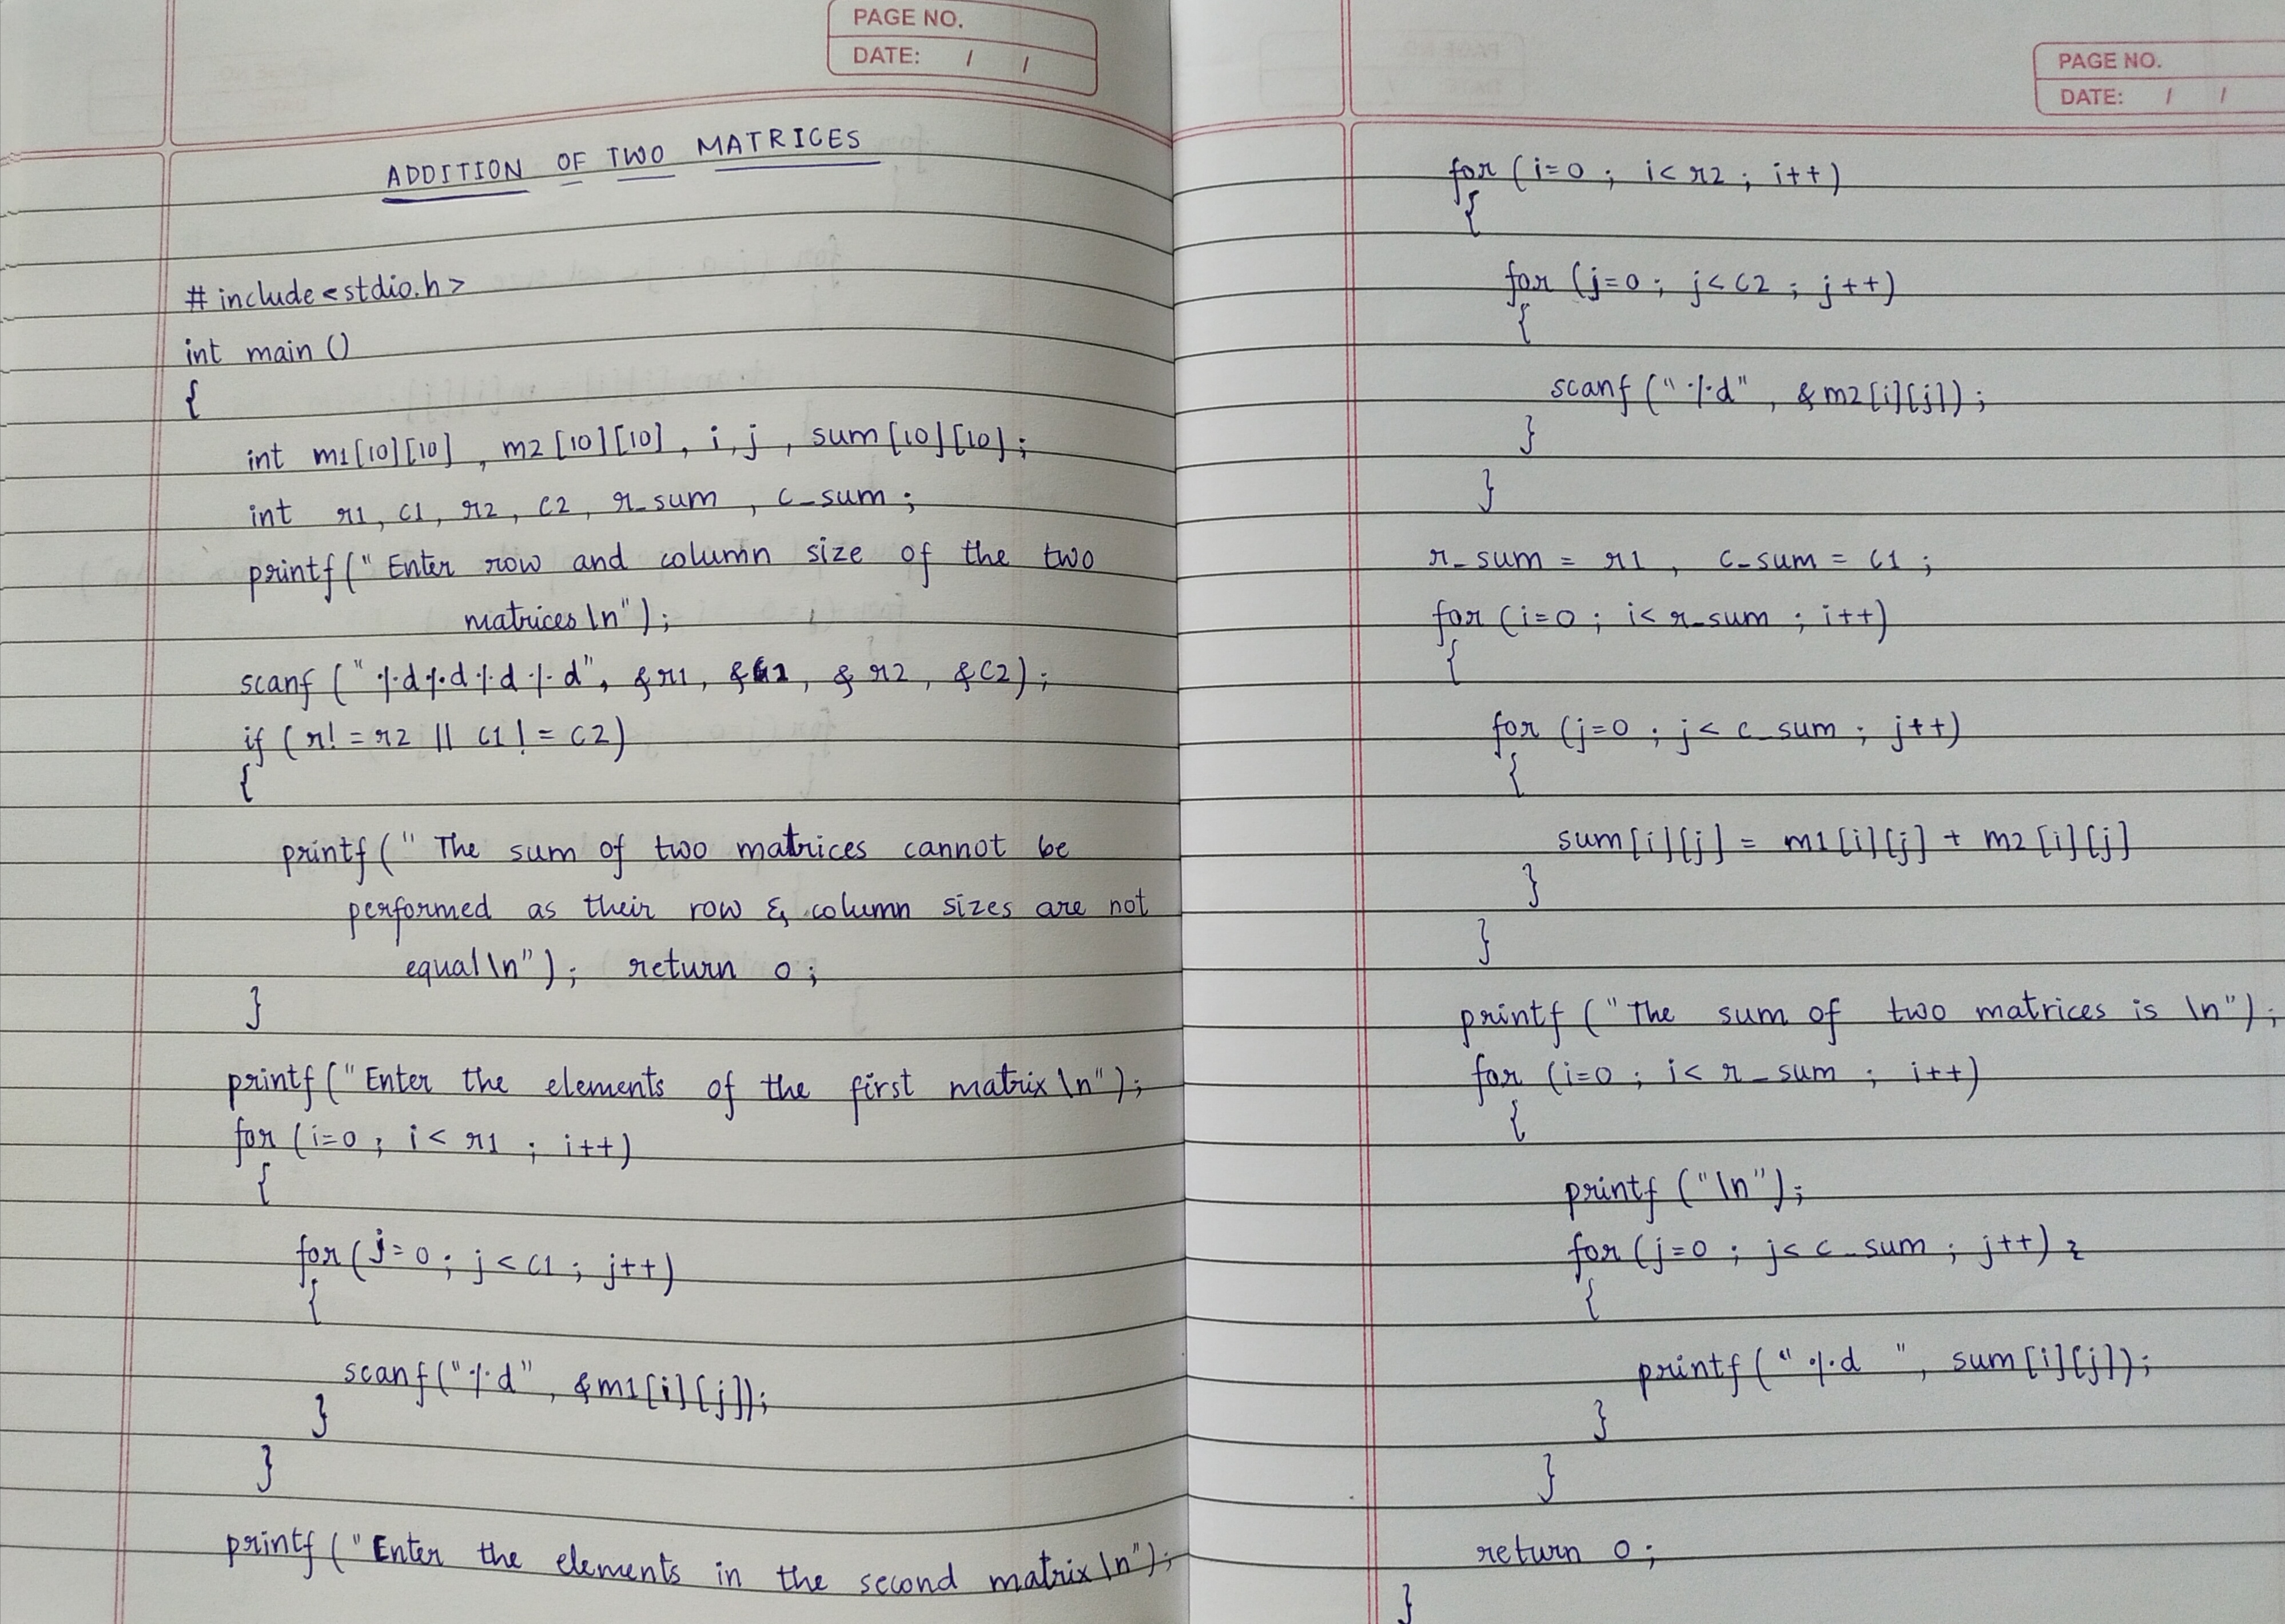 PAGE NO.
DATE: / /
ADDITION OF TWO MATRICES
#include<stdio.h>
int main ()
{
int m1[10][10], m2[10][10], i, j, sum[10][10];
int r1, c1, r2, c2, r_sum, c_sum;
printf(" Enter row and column size of the two
matrices\n");
scanf ("%d%d%d%d", &r1, &c1, &r2, &c2);
if (r!=r2 || c1!=c2)
{
printf(" The sum of two matrices cannot be
performed as their row & column sizes are not
equal\n"); return 0;
}
printf("Enter the elements of the first matrix\n");
for (i=0; i<r1; i++)
{
for(j=0; j<c1; j++)
{
scanf("%d", &m1[i][j]);
}
}
printf("Enter the elements in the second matrix\n");
PAGE NO.
DATE: / /
for (i=0; i<r2; i++)
{
for (j=0; j<c2; j++)
{
scanf("%d", &m2[i][j]);
}
}
r_sum = r1, c_sum = c1;
for (i=0; i<r_sum; i++)
{
for (j=0; j<c_sum; j++)
{
sum[i][j] = m1[i][j] + m2[i][j]
}
}
printf ("The sum of two matrices is \n");
for (i=0; i<r_sum; i++)
{
printf ("\n");
for(j=0; j<c_sum; j++)
{
printf("%d ", sum[i][j]);
}
}
return 0;
}